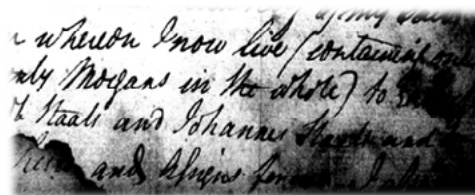 of my
whereon I now live (containing
only Mogans in the whole) to
Staats and Johannes Staats and
and Assigns forever